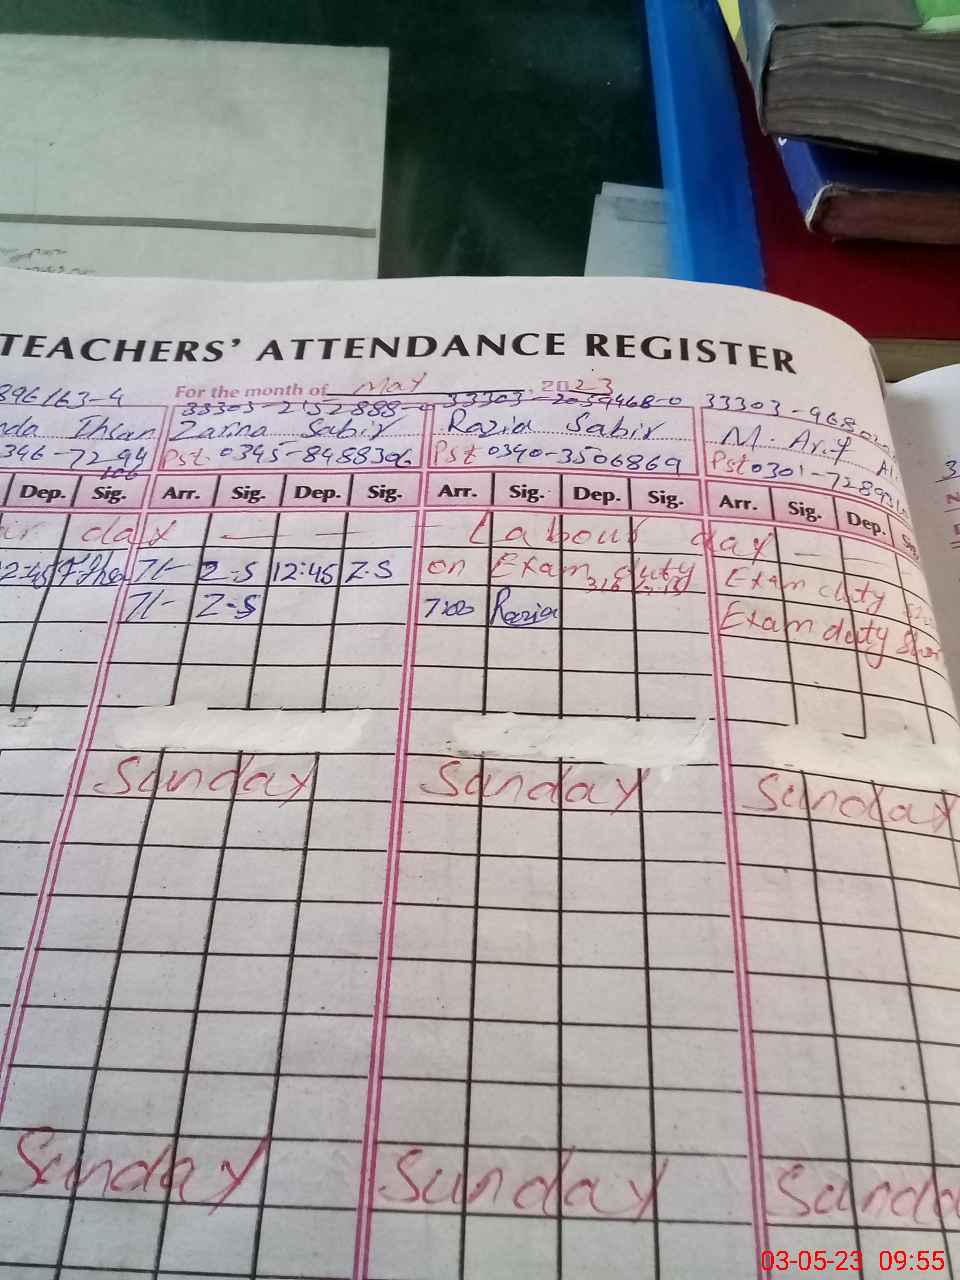 TEACHERS' ATTENDANCE REGISTER
For the month of May, 2023
896163-4 33303-2152888- 33303-2059468-0 33303-968
nda Ihsan Zarina Sabir Razia Sabir M. Arif
346-7294 Pst. 0345-8488396 Pst 0340-3506869 Pst 0301-72893
106
Dep. Sig. Arr. Sig. Dep. Sig. Arr. Sig. Dep. Sig. Arr. Sig. Dep. Sig.
day — — — Labour day —
2:45 7/- Z-S 12:45 Z-S on Exam duty Exam duty
7/- Z-S 7:00 Razia Exam duty
Sunday Sunday Sunday
Sunday Sunday Sunda
03-05-23 09:55